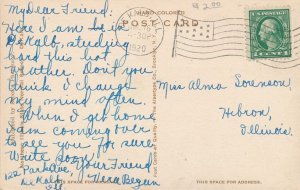 HAND-COLORED
POST CARD
$2.00
My dear Friend:
Here I am in
De Kalb, studying
hard this hot
weather. Don't you
think I change
my mind often.
When I get home
I'm coming over
to see you for sure
Write soon!
Your Friend
Vera Began
122 Park Ave.
De Kalb
1920
Miss Alma Sorenson,
Hebron,
Illinois.
THIS SPACE FOR MESSAGE
THIS SPACE FOR ADDRESS